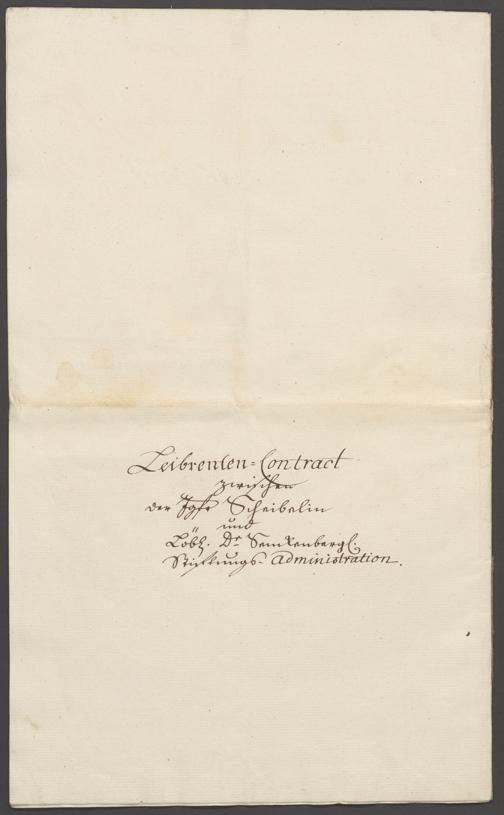 Leibrenten-Contract
zwischen
der Jgfr Scheibelin
und
Löbl. Dr Senckenbergl.
Stiftungs-Administration.